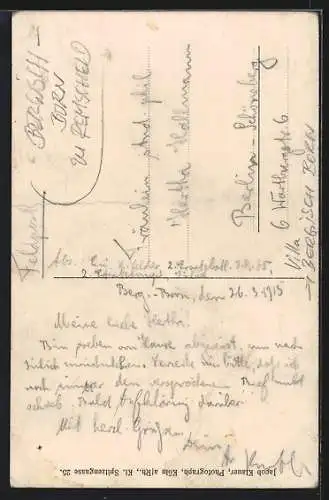 BERGISCH –
BORN
IN REMSCHEID
Feldpost
Fräulein stud. phil.
Hertha
Berlin – Schöneberg
6 Wartburgstr. 6
Villa
BERGISCH BORN
Abs.: 2. Ersatzbatl. J.R. 75,
2.
Berg.-Born, den 26.3.1915
Meine liebe Hertha.
Bin soeben von Hause abgereist, um nach
Verzeihe mir bitte, daß ich
noch immer den versprochenen Brief nicht
schrieb. Bald Aufklärung darüber.
Mit herzl. Grüßen
Dein
Jacob Klauer, Photograph, Köln a/Rh., Kl. Spitzengasse 25.